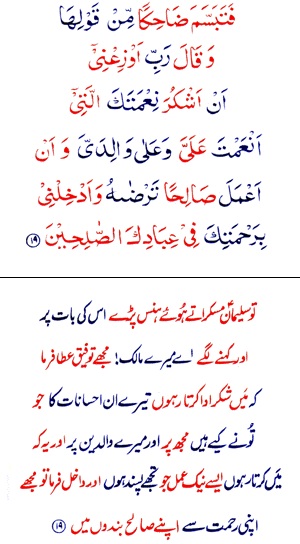 فَتَبَسَّمَ ضَاحِكًا مِّنْ قَوْلِهَا
وَ قَالَ رَبِّ اَوْزِعْنِیْۤ
اَنْ اَشْکُرَ نِعْمَتَكَ الَّتِیْۤ
اَنْعَمْتَ عَلَیَّ وَعَلٰی وَالِدَیَّ وَ اَنْ
اَعْمَلَ صَالِحًا تَرْضٰىهُ وَاَدْخِلْنِیْ
بِرَحْمَتِكَ فِیْ عِبَادِكَ الصّٰلِحِیْنَ ﴿۱۹﴾
تو سلیمانؑ مسکراتے ہوئے ہنس پڑے اس کی بات پر
اور کہنے لگے اے میرے مالک! مجھے توفیق عطا فرما
کہ میں شکر ادا کرتا رہوں تیرے ان احسانات کا جو
تُونے کیے ہیں مجھ پر اور میرے والدین پر اور یہ کہ
میں کرتا رہوں ایسے نیک عمل جو تجھے پسند ہوں اور داخل فرما تو مجھے
اپنی رحمت سے اپنے صالح بندوں میں ﴿۱۹﴾